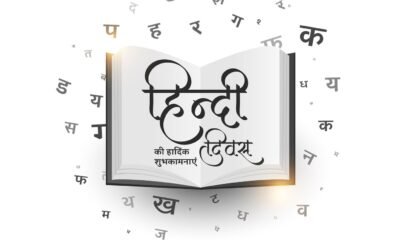 प ह र ग फ क
ड य य
हिन्दी
स ग क
की हार्दिक दिवस
शुभकामनाएं
स
फ य
म ख ध व